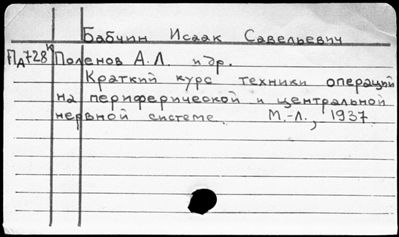 Бабчин Исаак Савельевич
ПД728к Поленов А.Л. и др.
Краткий курс техники операций
на периферической и центральной
нервной системе. М.-Л., 1937